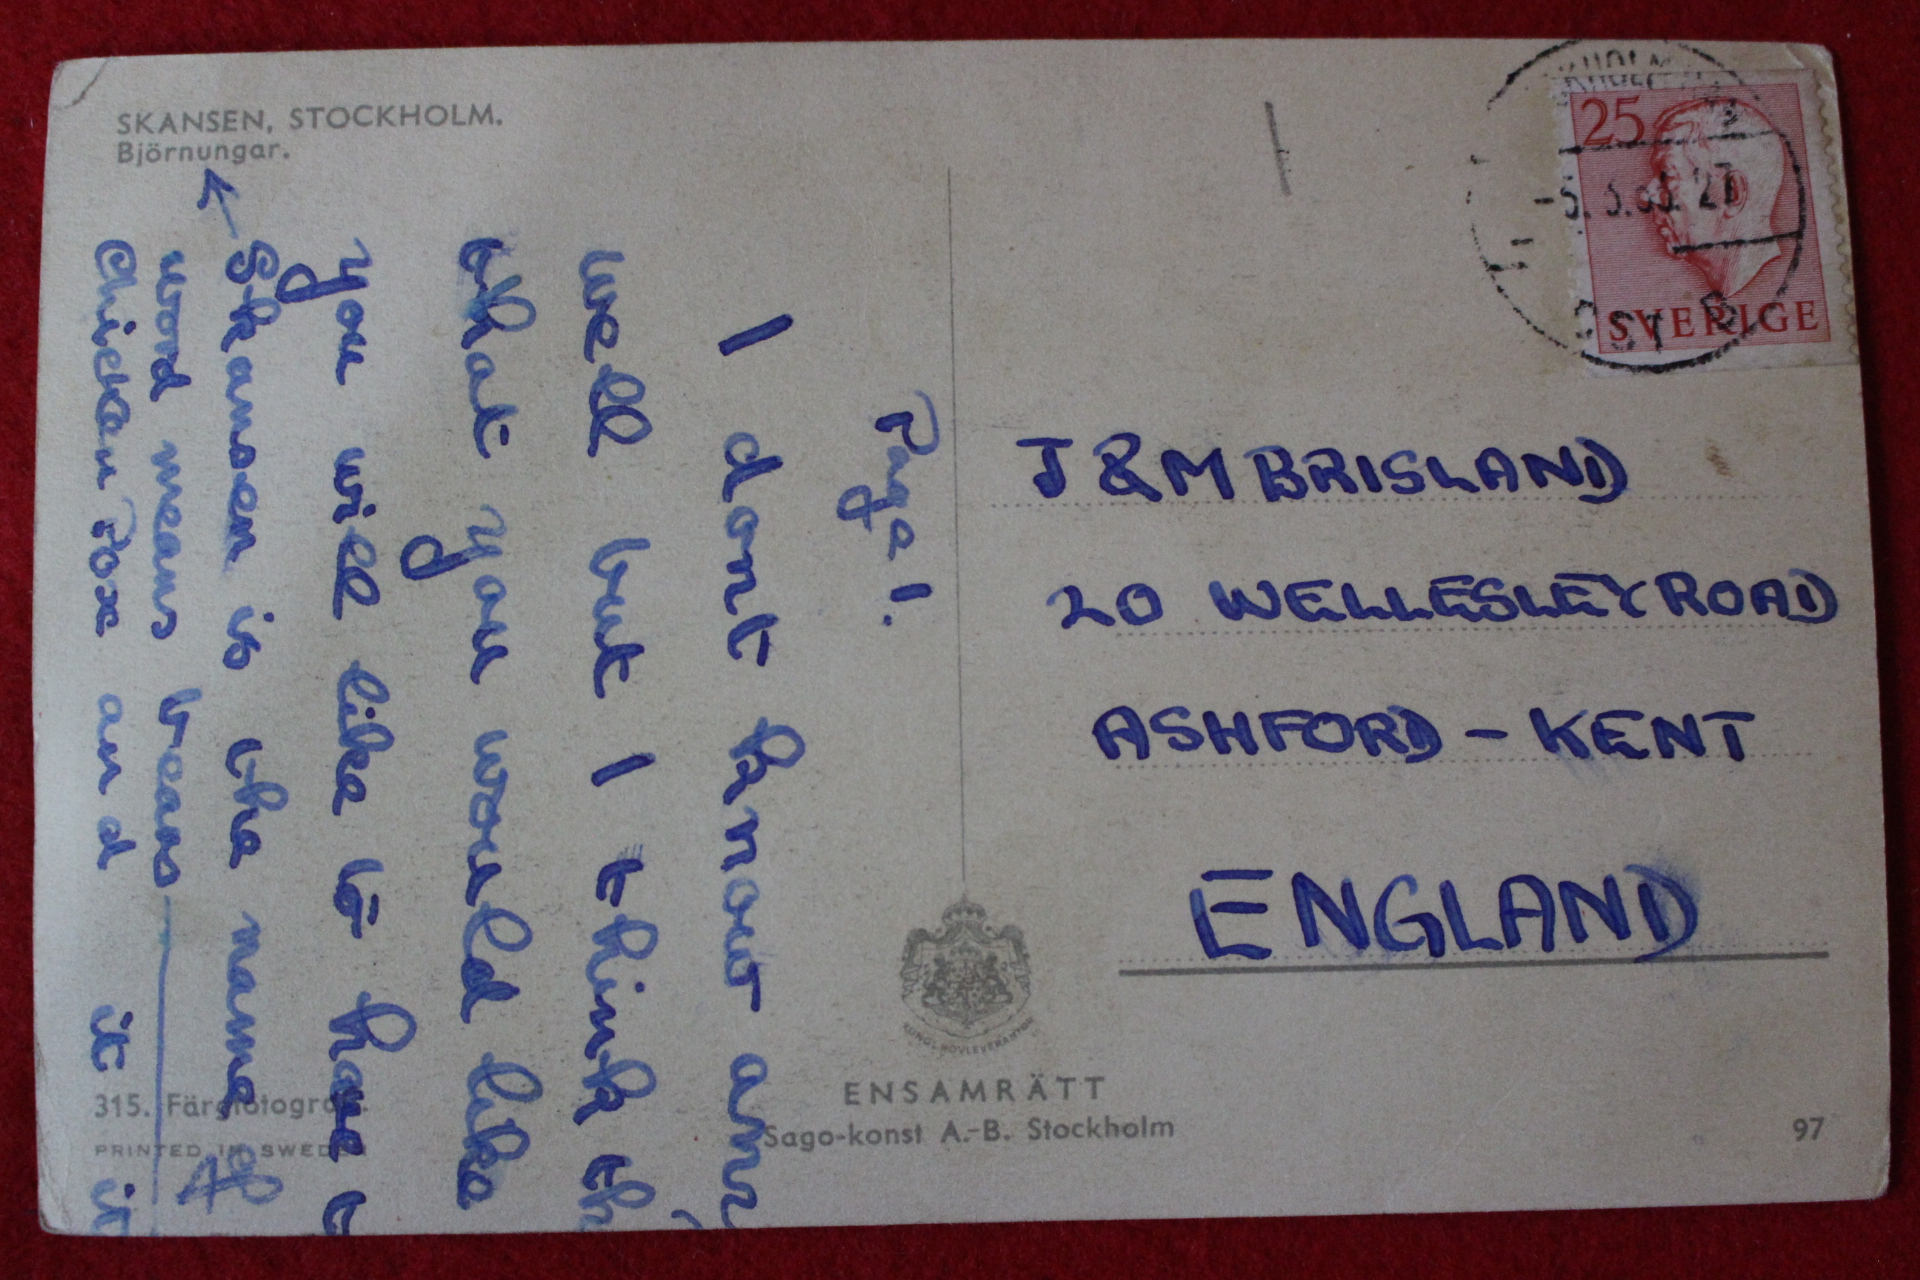 SKANSEN, STOCKHOLM.
Björnungar.
Page!
I dont know any
well but I think th
that you would like
you will like to have t
Skansen is the name of
word means bears
Chicken Pox and it is
315.
PRINTED IN SWEDEN
KUNGL. HOVLEVERANTÖR
ENSAMRÄTT
Sago-konst A.-B. Stockholm
25
SVERIGE
J & M BRISLAND
20 WELLESLEY ROAD
ASHFORD - KENT
ENGLAND
97